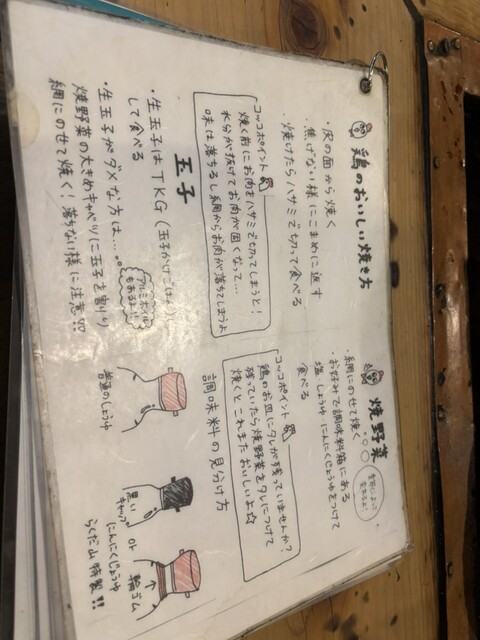 鶏のおいしい焼き方
・皮の面から焼く
・焦げない様にこまめに返す
・焼けたらハサミで切って食べる
コッコポイント
焼く前にお肉をハサミで切ってしまうと!
水分が抜けてお肉が固くなって…
味は落ちるし網からお肉が落ちてしまうよ
玉子
・生玉子はTKG(玉子かけごはん)に
して食べる
・生玉子がダメな方は…。
アルミホイル
もあるよ!!
焼野菜の大きめキャベツに玉子を割り
網にのせて焼く!落ちない様に注意!!
焼野菜
季節によって
変わるよ!
・網にのせて焼く
・お好みで調味料箱にある
塩 しょうゆ にんにくじょうゆをつけて
食べる
コッコポイント
鶏のお皿にタレが残っていませんか?
残っていたら焼野菜をタレにつけて
焼くとこれまたおいしいよ☆
調味料の見分け方
普通のしょうゆ
黒い
キャップ
or
輪ゴム
にんにくじょうゆ
らくだ山特製!!